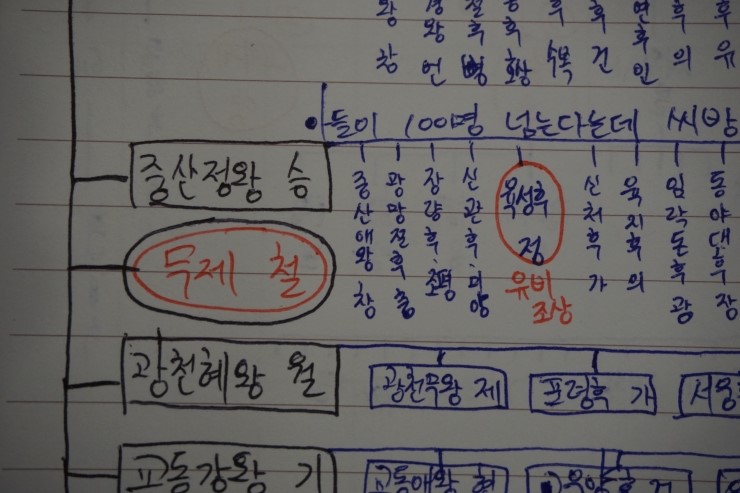 왕 창
왕 언
후 수복
후 건
연후 인
후 의
후 유
아들이 100명 넘는다는데 씨방
중산정왕 승
중산애왕 창
광망절후 충
장량후 조평
신관후 미양
육성후
정
유비
조상
신처후 가
육지후 의
임락돈후 광
동야대후 장
무제 철
광천혜왕 월
광천무왕 제
포덕후 가
서옹
교동강왕 기
교동애왕 현